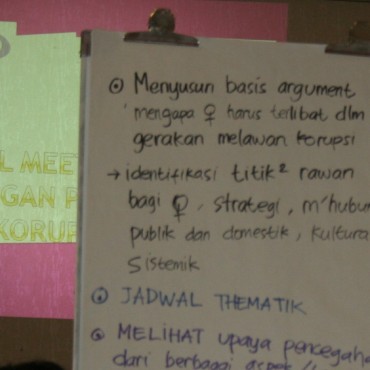 L MEET
GAN P
KORUP
⊙ Menyusun basis argument
mengapa ♀ harus terlibat dlm
gerakan melawan korupsi
→ identifikasi titik² rawan
bagi ♀, strategi, m'hubu
publik dan domestik, kultura
Sistemik
⊙ JADWAL THEMATIK
⊙ MELIHAT upaya pencegaha
dari berbagai aspek